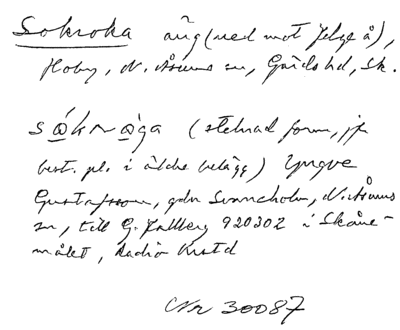 Sokroka äng (ned mot Helge å),
Hoby, N. Åsums sn, Gärds hd, Sk.
såkråga (stelnad form, jfr
best. pl. i äldre belägg) Yngve
Gustafsson, gdn Svaneholm, N. Åsums
sn, till G. Hallberg 920302 i Skåne-
målet, Radio Krstd
Nr 30087